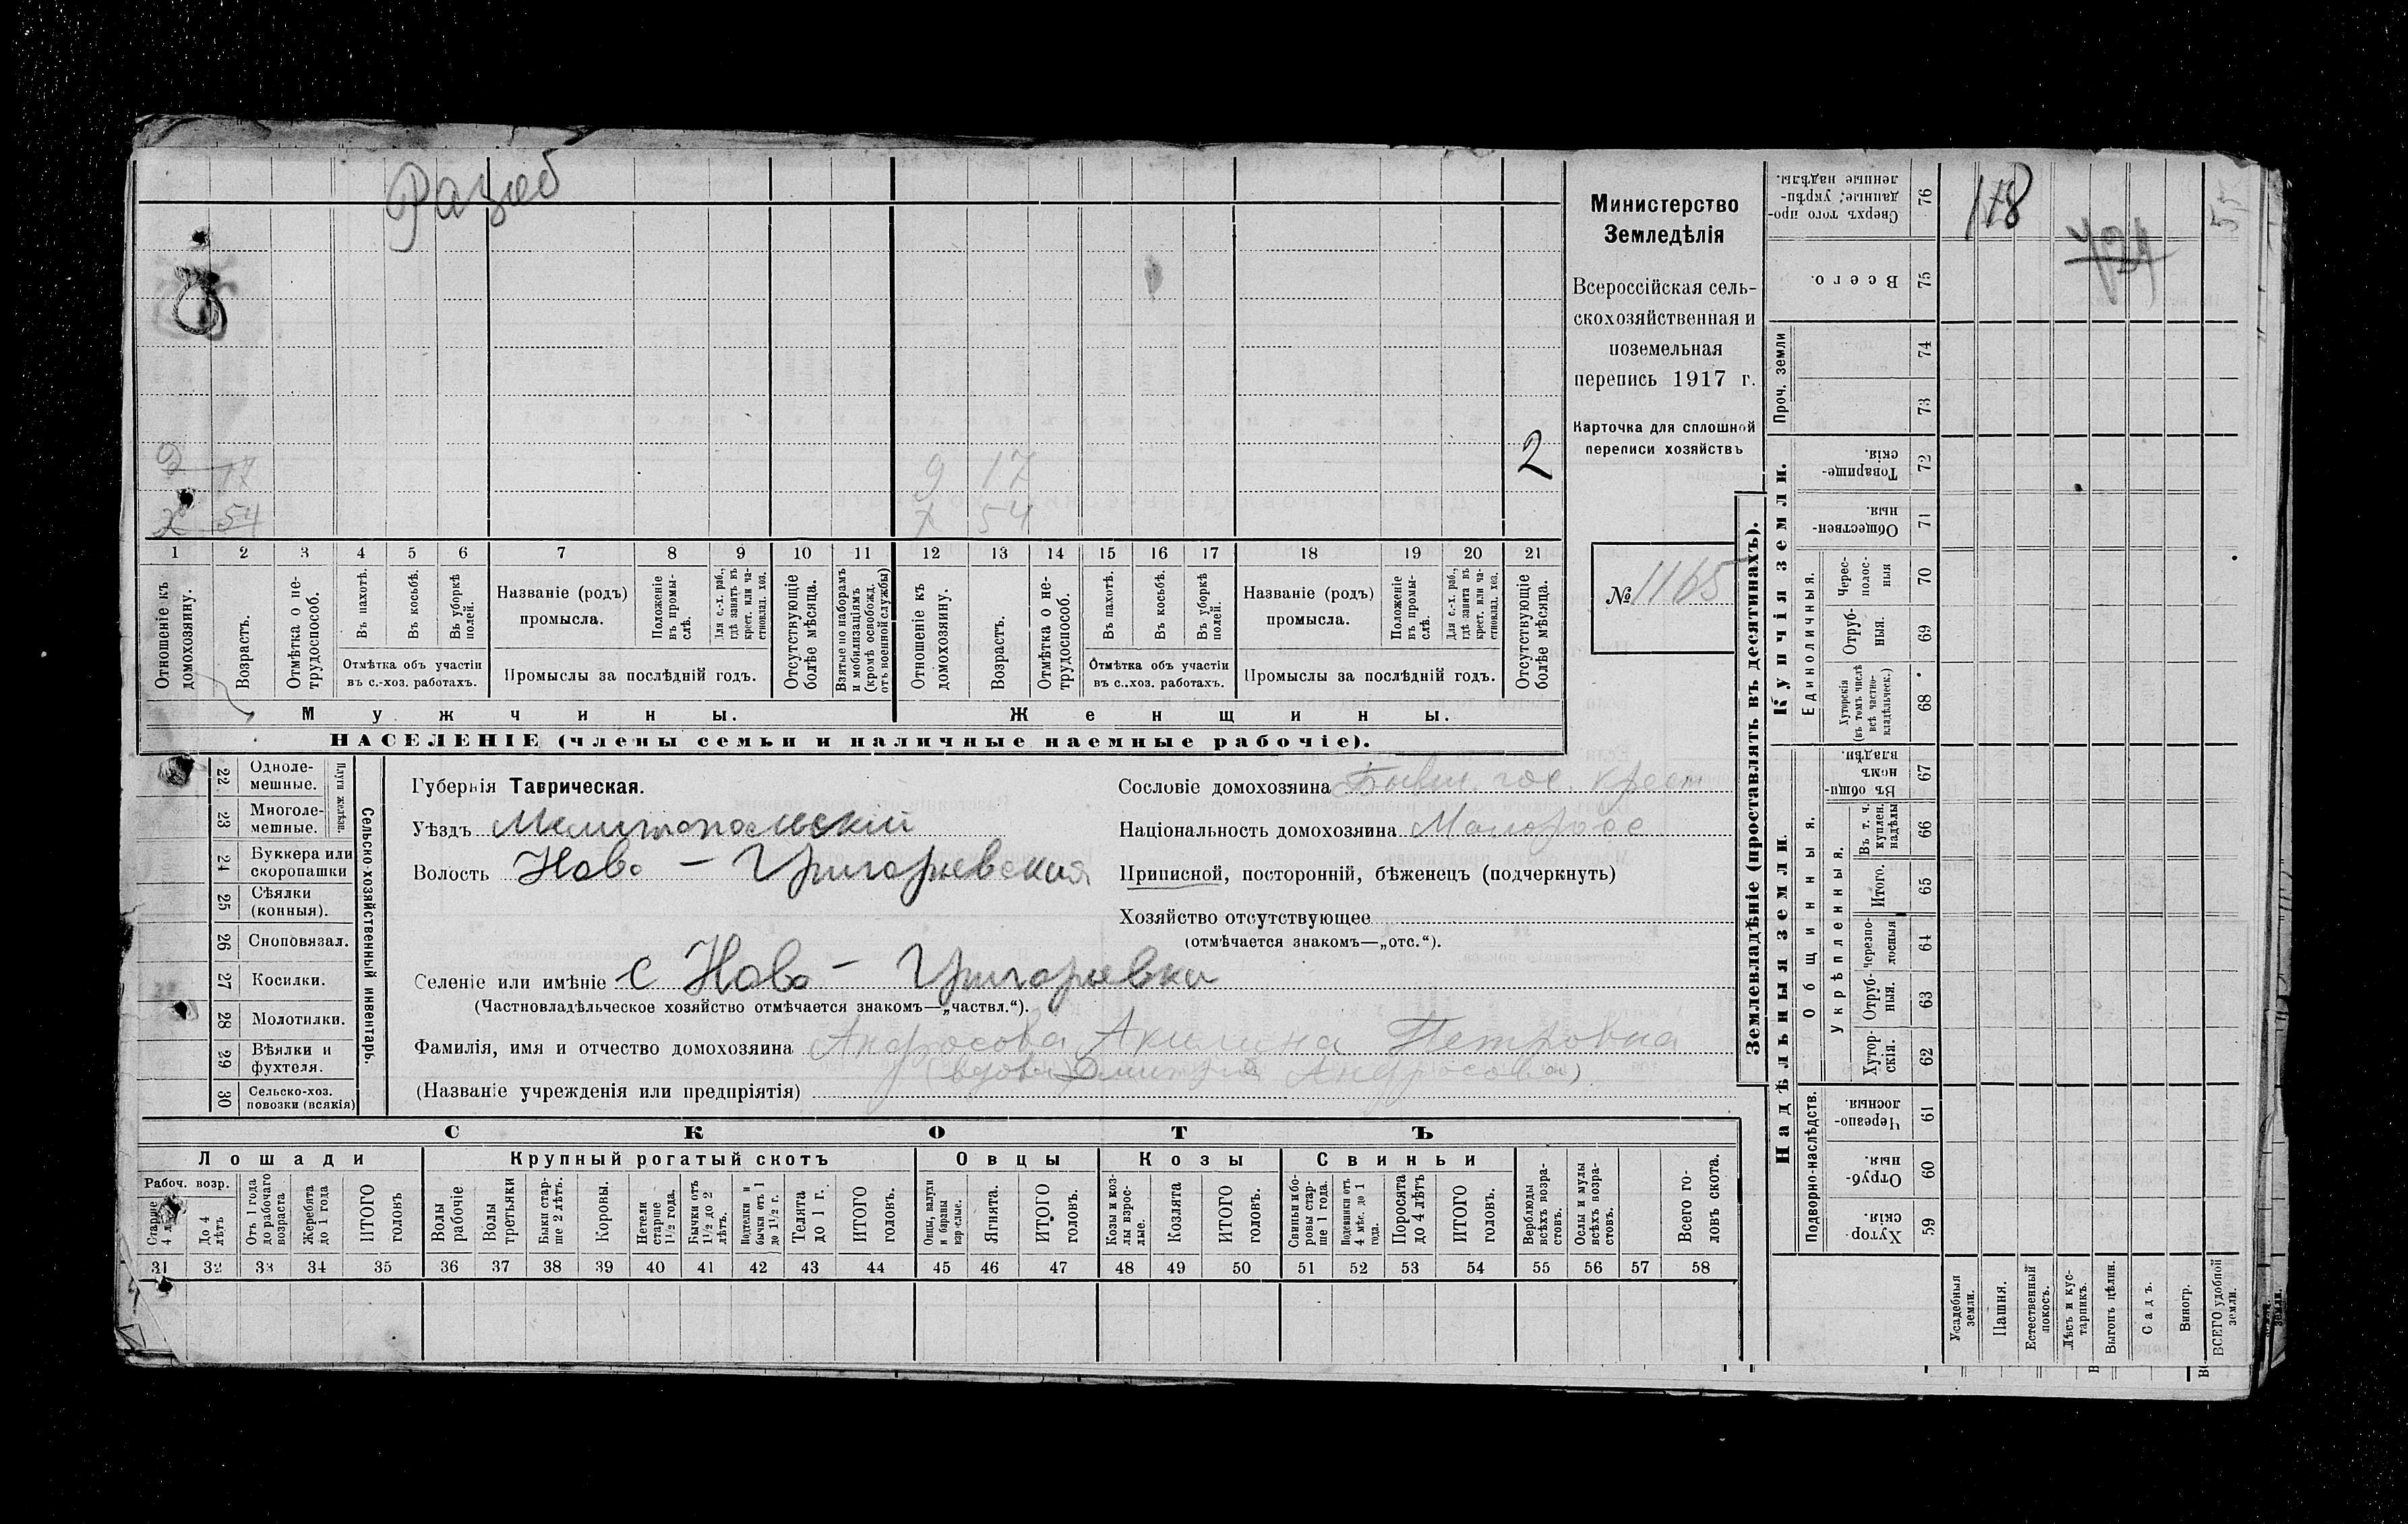 Разоб
118
55
Министерство
Земледѣлія
Всероссійская сель-
скохозяйственная и
поземельная
перепись 1917 г.
Карточка для сплошной
переписи хозяйствъ
№ 1165
9 17 9 17 2
х 54 х 54
1 2 3 4 5 6 7 8 9 10 11 12 13 14 15 16 17 18 19 20 21
Отношеніе къ домохозяину.
Возрастъ.
Отмѣтка о не-трудоспособ.
Въ пахотѣ.
Въ косьбѣ.
Въ уборкѣ полей.
Отмѣтка объ участіи
въ с.-хоз. работахъ.
Названіе (родъ)
промысла.
Положеніе въ промы-слѣ.
Для с.-х. раб., гдѣ занятъ въ крест. или ча-стновлад. хоз.
Промыслы за послѣдній годъ.
Отсутствующіе болѣе мѣсяца.
Взятые по наборамъ и мобилизаціямъ (кромѣ освобожд. отъ военной службы)
Отношеніе къ домохозяину.
Возрастъ.
Отмѣтка о не-трудоспособ.
Въ пахотѣ.
Въ косьбѣ.
Въ уборкѣ полей.
Отмѣтка объ участіи
въ с..хоз. работахъ.
Названіе (родъ)
промысла.
Положеніе въ промы-слѣ.
Для с.-х. раб., гдѣ занята въ крест. или ча-стновлад. хоз.
Промыслы за послѣдній годъ.
Отсутствующіе болѣе мѣсяца.
Мужчины. Женщины.
НАСЕЛЕНІЕ (члены семьи и наличные наемные рабочіе).
Сельско-хозяйственный инвентарь.
Плуги желѣзн.
22 Одноле-мешные.
23 Многоле-мешные.
24 Буккера или скоропашки
25 Сѣялки (конныя).
26 Сноповязал.
27 Косилки.
28 Молотилки.
29 Вѣялки и фухтеля.
30 Сельско-хоз. повозки (всякія)
Губернія Таврическая.
Уѣздъ Мелитопольскій
Волость Ново - Григорьевская
Селеніе или имѣніе с Ново - Григорьевка
(Частновладѣльческое хозяйство отмѣчается знакомъ—„частвл.“).
Фамилія, имя и отчество домохозяина Андросова Акилина Петровна
(вдова Дмитрія Андросова)
(Названіе учрежденія или предпріятія)
Сословіе домохозяина Бывш. гос. крест
Національность домохозяина Малоросс
Приписной, посторонній, бѣженецъ (подчеркнуть)
Хозяйство отсутствующее
(отмѣчается знакомъ—„отс.“).
СКОТЪ
Лошади Крупный рогатый скотъ Овцы Козы Свиньи
Рабоч. возр.
Старше 4 л
До 4 лѣтъ
Отъ 1 года до рабочаго возраста
Жеребята до 1 года
ИТОГО головъ
Волы рабочіе.
Волы третьяки
Быки стар-ше 2 лѣтъ.
Коровы.
Нетели старше 1½ года.
Бычки отъ 1½ до 2 лѣтъ.
Подтелки и бычки отъ 1 до 1½ г.
Телята до 1 г.
ИТОГО головъ.
Овцы, валухи и бараны взрослые.
Ягнята.
ИТОГО головъ.
Козы и коз-лы взрос-лые.
Козлята
ИТОГО головъ.
Свиньи и бо-ровы стар-ше 1 года.
Подсвинки отъ 4 мѣс. до 1 года.
Поросята до 4 лѣтъ
ИТОГО головъ.
Верблюды всѣхъ возра-стовъ.
Ослы и мулы всѣхъ возра-стовъ.
Всего го-ловъ скота.
31 32 33 34 35 36 37 38 39 40 41 42 43 44 45 46 47 48 49 50 51 52 53 54 55 56 57 58
Землевладѣніе (проставлять въ десятинахъ).
Купчія земли.
Надѣльныя земли.
Сверхъ того про-данные; укрѣп-ленные надѣлы. 76
Всего. 75
Проч. земли 74
73
Товарище-скія. 72
Обществен-ныя. 71
Единоличныя.
Черес-полос-ныя 70
Отруб-ныя. 69
Хуторскія (въ томъ числѣ всѣ частно-владѣльческ.) 68
Общинныя.
Въ общи-нномъ владѣн. 67
Укрѣпленныя.
Въ т. ч. куплен. надѣлы 66
Итого. 65
Черезпо-лосныя 64
Отруб-ныя. 63
Хутор-скія. 62
Подворно-наслѣдств.
Черезпо-лосныя. 61
Отруб-ныя. 60
Хутор-скія. 59
Усадебныя земли.
Пашня.
Естественный покосъ.
Лѣсъ и кус-тарникъ.
Выгонъ цѣлин.
Садъ.
Виногр.
ВСЕГО удобной земли.